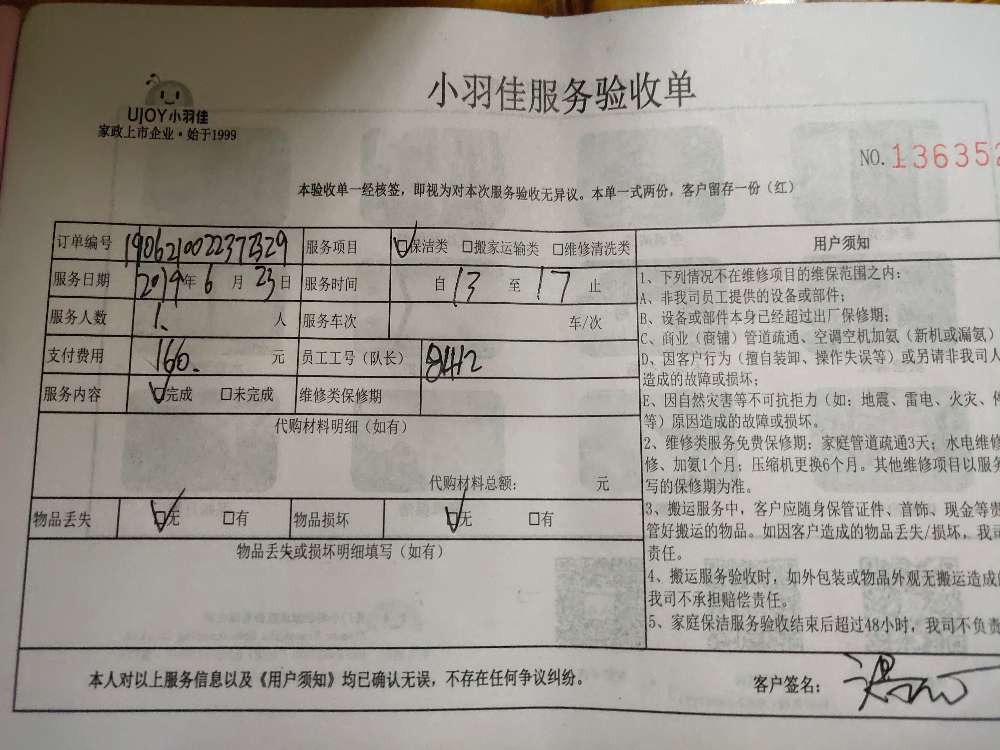 小羽佳服务验收单
UJOY小羽佳
家政上市企业·始于1999
NO. 136352
本验收单一经核签，即视为对本次服务验收无异议。本单一式两份，客户留存一份（红）
订单编号 服务项目 ☑保洁类 □搬家运输类 □维修清洗类
服务日期 2019年6月23日 服务时间 自13至17止
服务人数 1. 人 服务车次 车/次
支付费用 160. 元 员工工号（队长） 8442
服务内容 ☑完成 □未完成 维修类保修期
代购材料明细（如有）
代购材料总额： 元
物品丢失 ☑无 □有 物品损坏 ☑无 □有
物品丢失或损坏明细填写（如有）
用户须知
1、下列情况不在维修项目的维保范围之内：
A、非我司员工提供的设备或部件；
B、设备或部件本身已经超过出厂保修期；
C、商业（商铺）管道疏通、空调空机加氨（新机或漏氨）
D、因客户行为（擅自装卸、操作失误等）或另请非我司人
造成的故障或损坏；
E、因自然灾害等不可抗拒力（如：地震、雷电、火灾、
等）原因造成的故障或损坏。
2、维修类服务免费保修期：家庭管道疏通3天；水电维修
修、加氨1个月；压缩机更换6个月。其他维修项目以服务
写的保修期为准。
3、搬运服务中，客户应随身保管证件、首饰、现金等贵
管好搬运的物品。如因客户造成的物品丢失/损坏，我司
责任。
4、搬运服务验收时，如外包装或物品外观无搬运造成的
我司不承担赔偿责任。
5、家庭保洁服务验收结束后超过48小时，我司不负责
本人对以上服务信息以及《用户须知》均已确认无误，不存在任何争议纠纷。 客户签名：